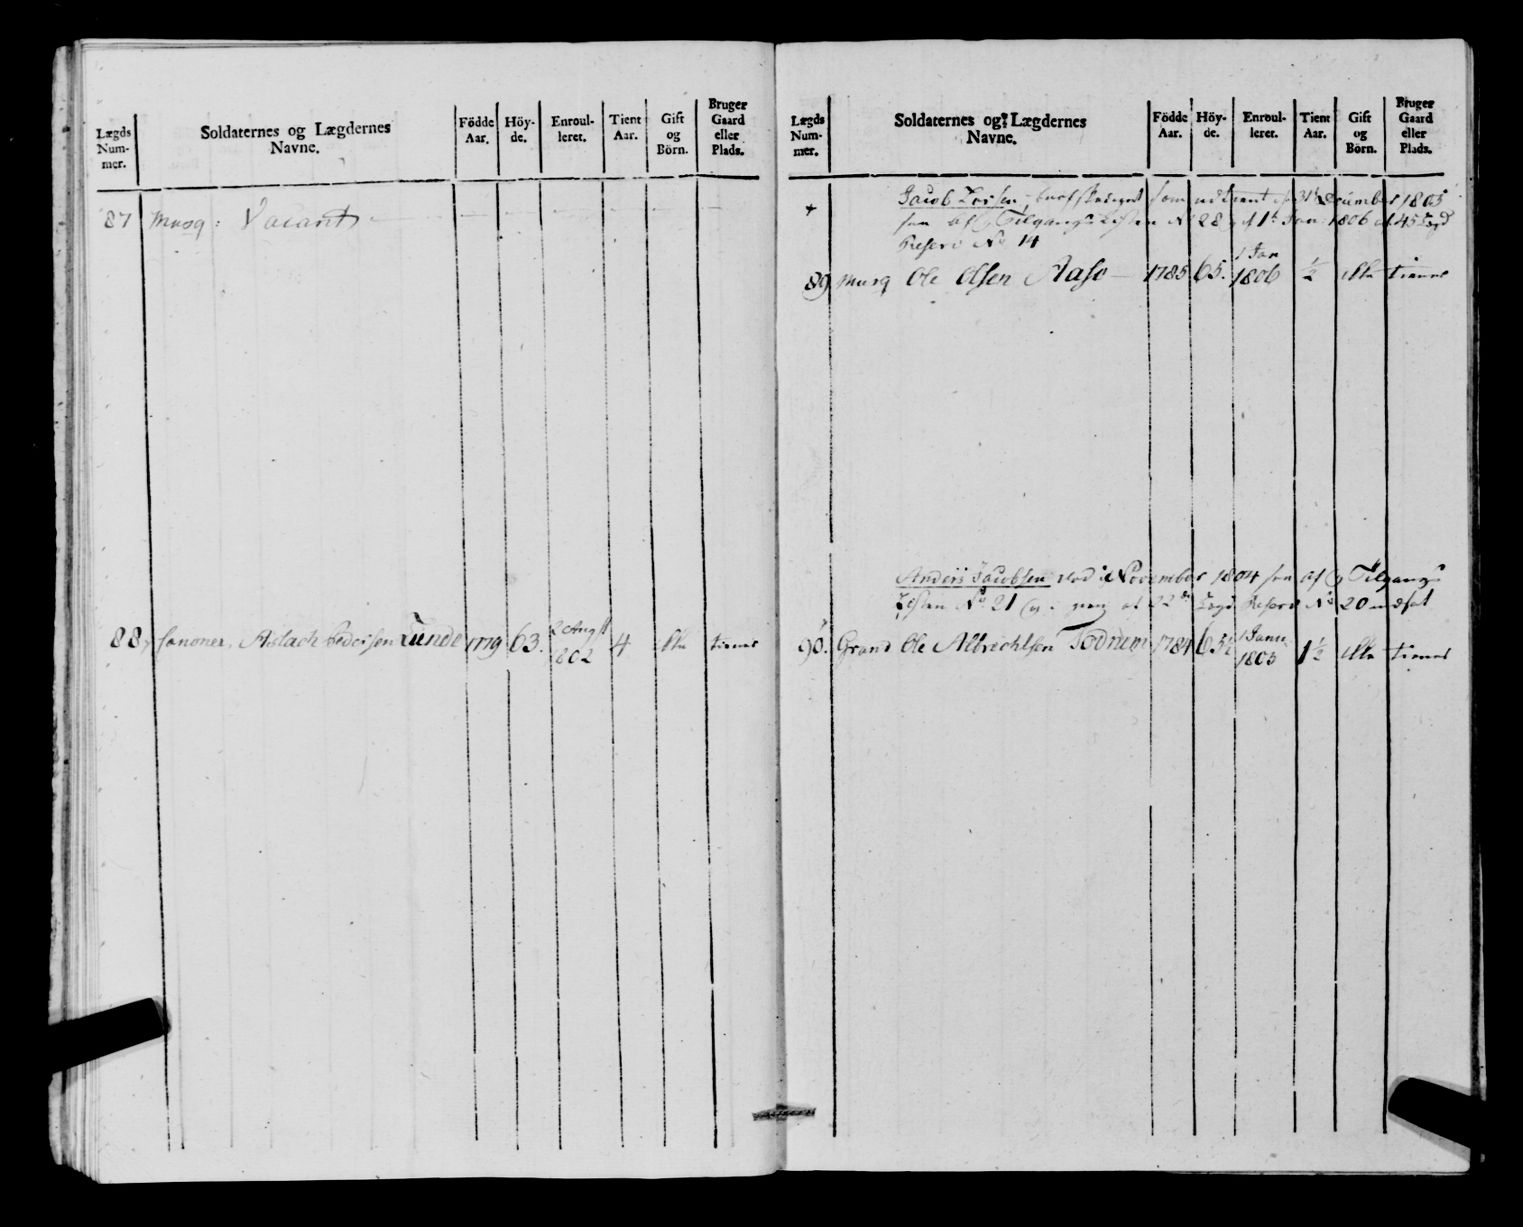 Lægds Num- mer.
Soldaternes og Lægdernes Navne.
Födde Aar.
Höy- de.
Enroul- leret.
Tient Aar.
Gift og Börn.
Bruger Gaard eller Plads.
87 Musq: Vacant
88, Canoner, Aslach Pedersen Lunde 1779 63. 2 Aug 1802 4 tienes
Lægds Num- mer.
Soldaternes og Lægdernes Navne.
Födde Aar.
Höy- de.
Enroul- leret.
Tient Aar.
Gift og Börn.
Bruger Gaard eller Plads.
+ Jacob som udtient 31t December 1805
af Tilgangs Listen No 28 1t Jan: 1806 af 45
Reserv No 14
89, Musq Ole Olsen Aase 1785 65. 1 Jan 1806 ½ tienes
Anders Jacobsen död i November 1804 af Tilgangs
Listen No 21 af 22de Lægd Reserv No 20
90. Grand Ole Albrechtsen Todnem 1784 65½ 1 Janu 1805 1½ tienes